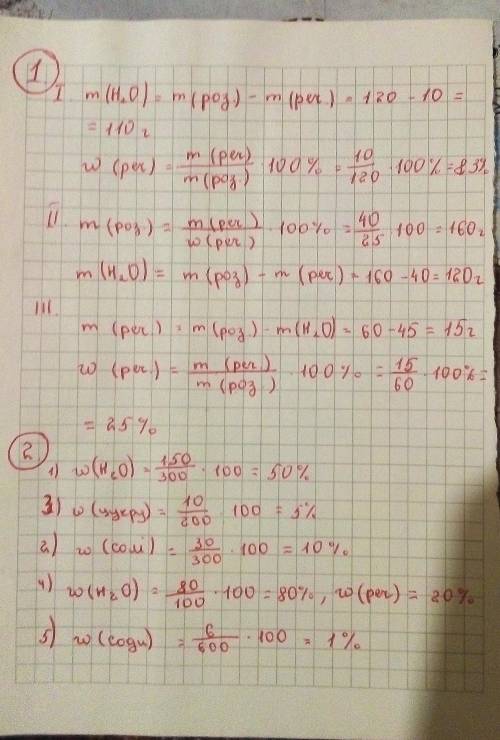 1
I. m(H₂O) = m(роз.) – m(реч.) = 120 – 10 =
= 110 г
w (реч) = m(реч)/m(роз.) · 100% = 10/120 · 100% = 8.3%
II. m(роз.) = m(реч)/w(реч.) · 100% = 40/25 · 100 = 160 г
m(H₂O) = m(роз) – m(реч) = 160 – 40 = 120 г
III.
m (реч.) = m(роз.) – m(H₂O) = 60 – 45 = 15 г
w (реч.) = m (реч.)/m (роз.) · 100% = 15/60 · 100% =
= 25%
2.
1) w(H₂O) = 150/300 · 100 = 50%
3) w(цукру) = 10/200 · 100 = 5%
2) w (солі) = 30/300 · 100 = 10%
4) w(H₂O) = 80/100 · 100 = 80%, w(реч) = 20%
5) w(соди) = 6/600 · 100 = 1%